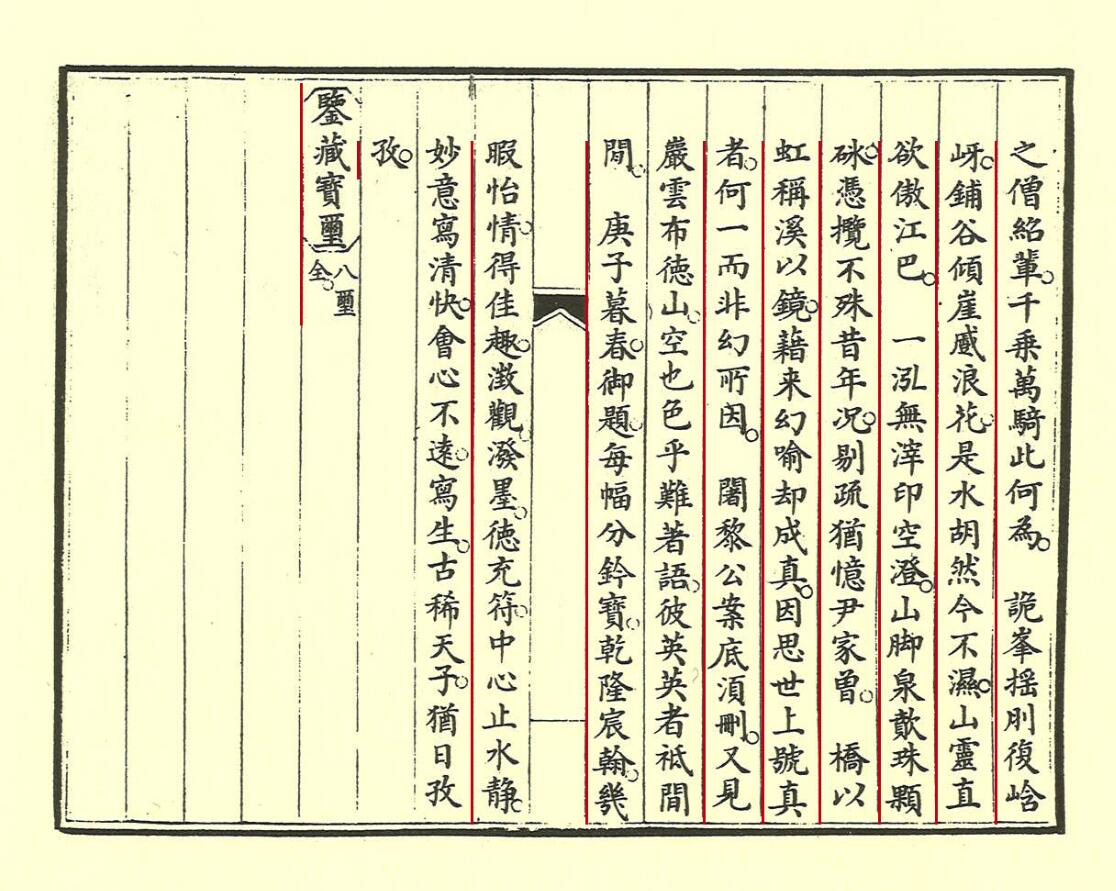 之僧紹輩。千乗萬騎此何為。　詭峯揺刖復崡
岈。鋪谷傾崖感浪花。是水胡然今不濕。山靈直
欲傲江巴。　一泓無滓印空澄。山脚泉歕珠顆
砯。憑攬不殊昔年况。剔疏猶憶尹家曾。　橋以
虹稱溪以鏡。藉来幻喻却成真。因思世上號真
者。何一而非幻所因。　闍黎公案底湏刪。又見
巖雲布徳山。空也色乎難著語。彼英英者祗閒
閒。　庚子暮春。御題。每幅分鈐寶。乾隆宸翰。㡬
暇怡情。得佳趣。澂觀。潑墨。徳充符。中心止水静。
妙意寫清快。會心不遠。寫生。古稀天子。猶日孜
孜。
鑒藏寶璽
八璽
全。